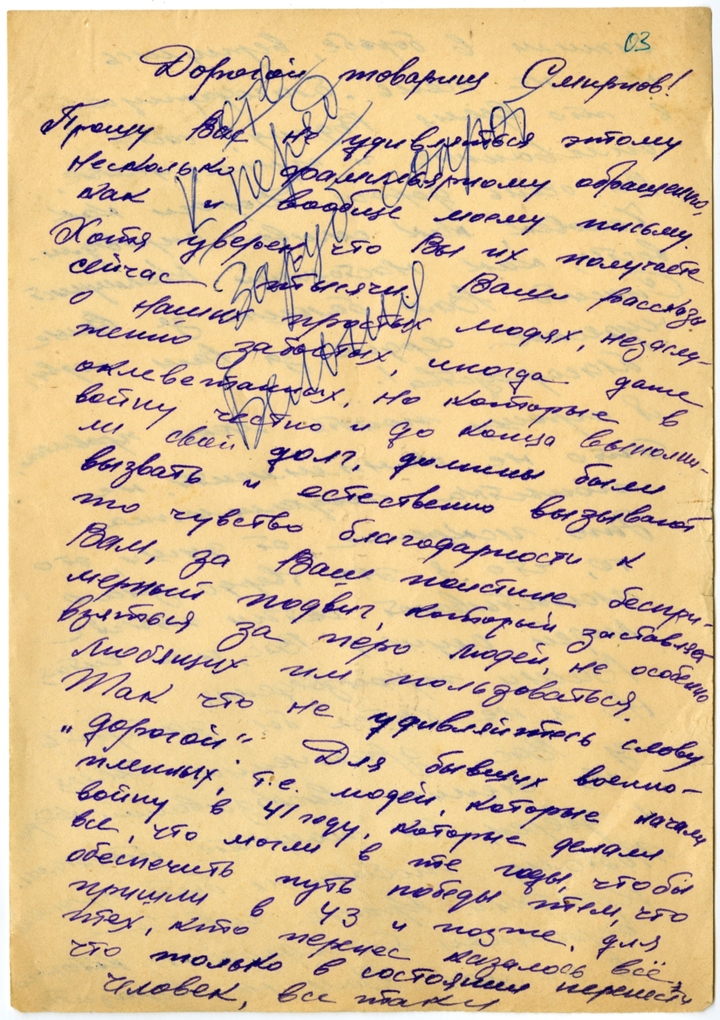 03
Дорогой товарищ Смирнов!
Прошу Вас не удивляться этому
несколько фамильярному обращению,
как и вообще моему письму.
Хотя уверен, что Вы их получаете
сейчас тысячи. Ваши рассказы
о наших простых людях, незаслу-
женно забытых, иногда даже
оклеветанных, но которые в
войну честно и до конца выполни-
ли свой долг, должны были
вызвать и естественно вызывают
то чувство благодарности к
Вам, за Ваш поистине беспри-
мерный подвиг, который заставляет
взяться за перо людей, не особенно
любящих им пользоваться.
Так что не удивляйтесь слову
"дорогой". Для бывших военно-
пленных, т.е. людей, которые начали
войну в 41 году, которые делали
все, что могли в те годы, чтобы
обеспечить путь победы тем, что
пришли в 43 и позже, для
тех, кто перенес казалось всё,
что только в состоянии перенести
человек, все таки